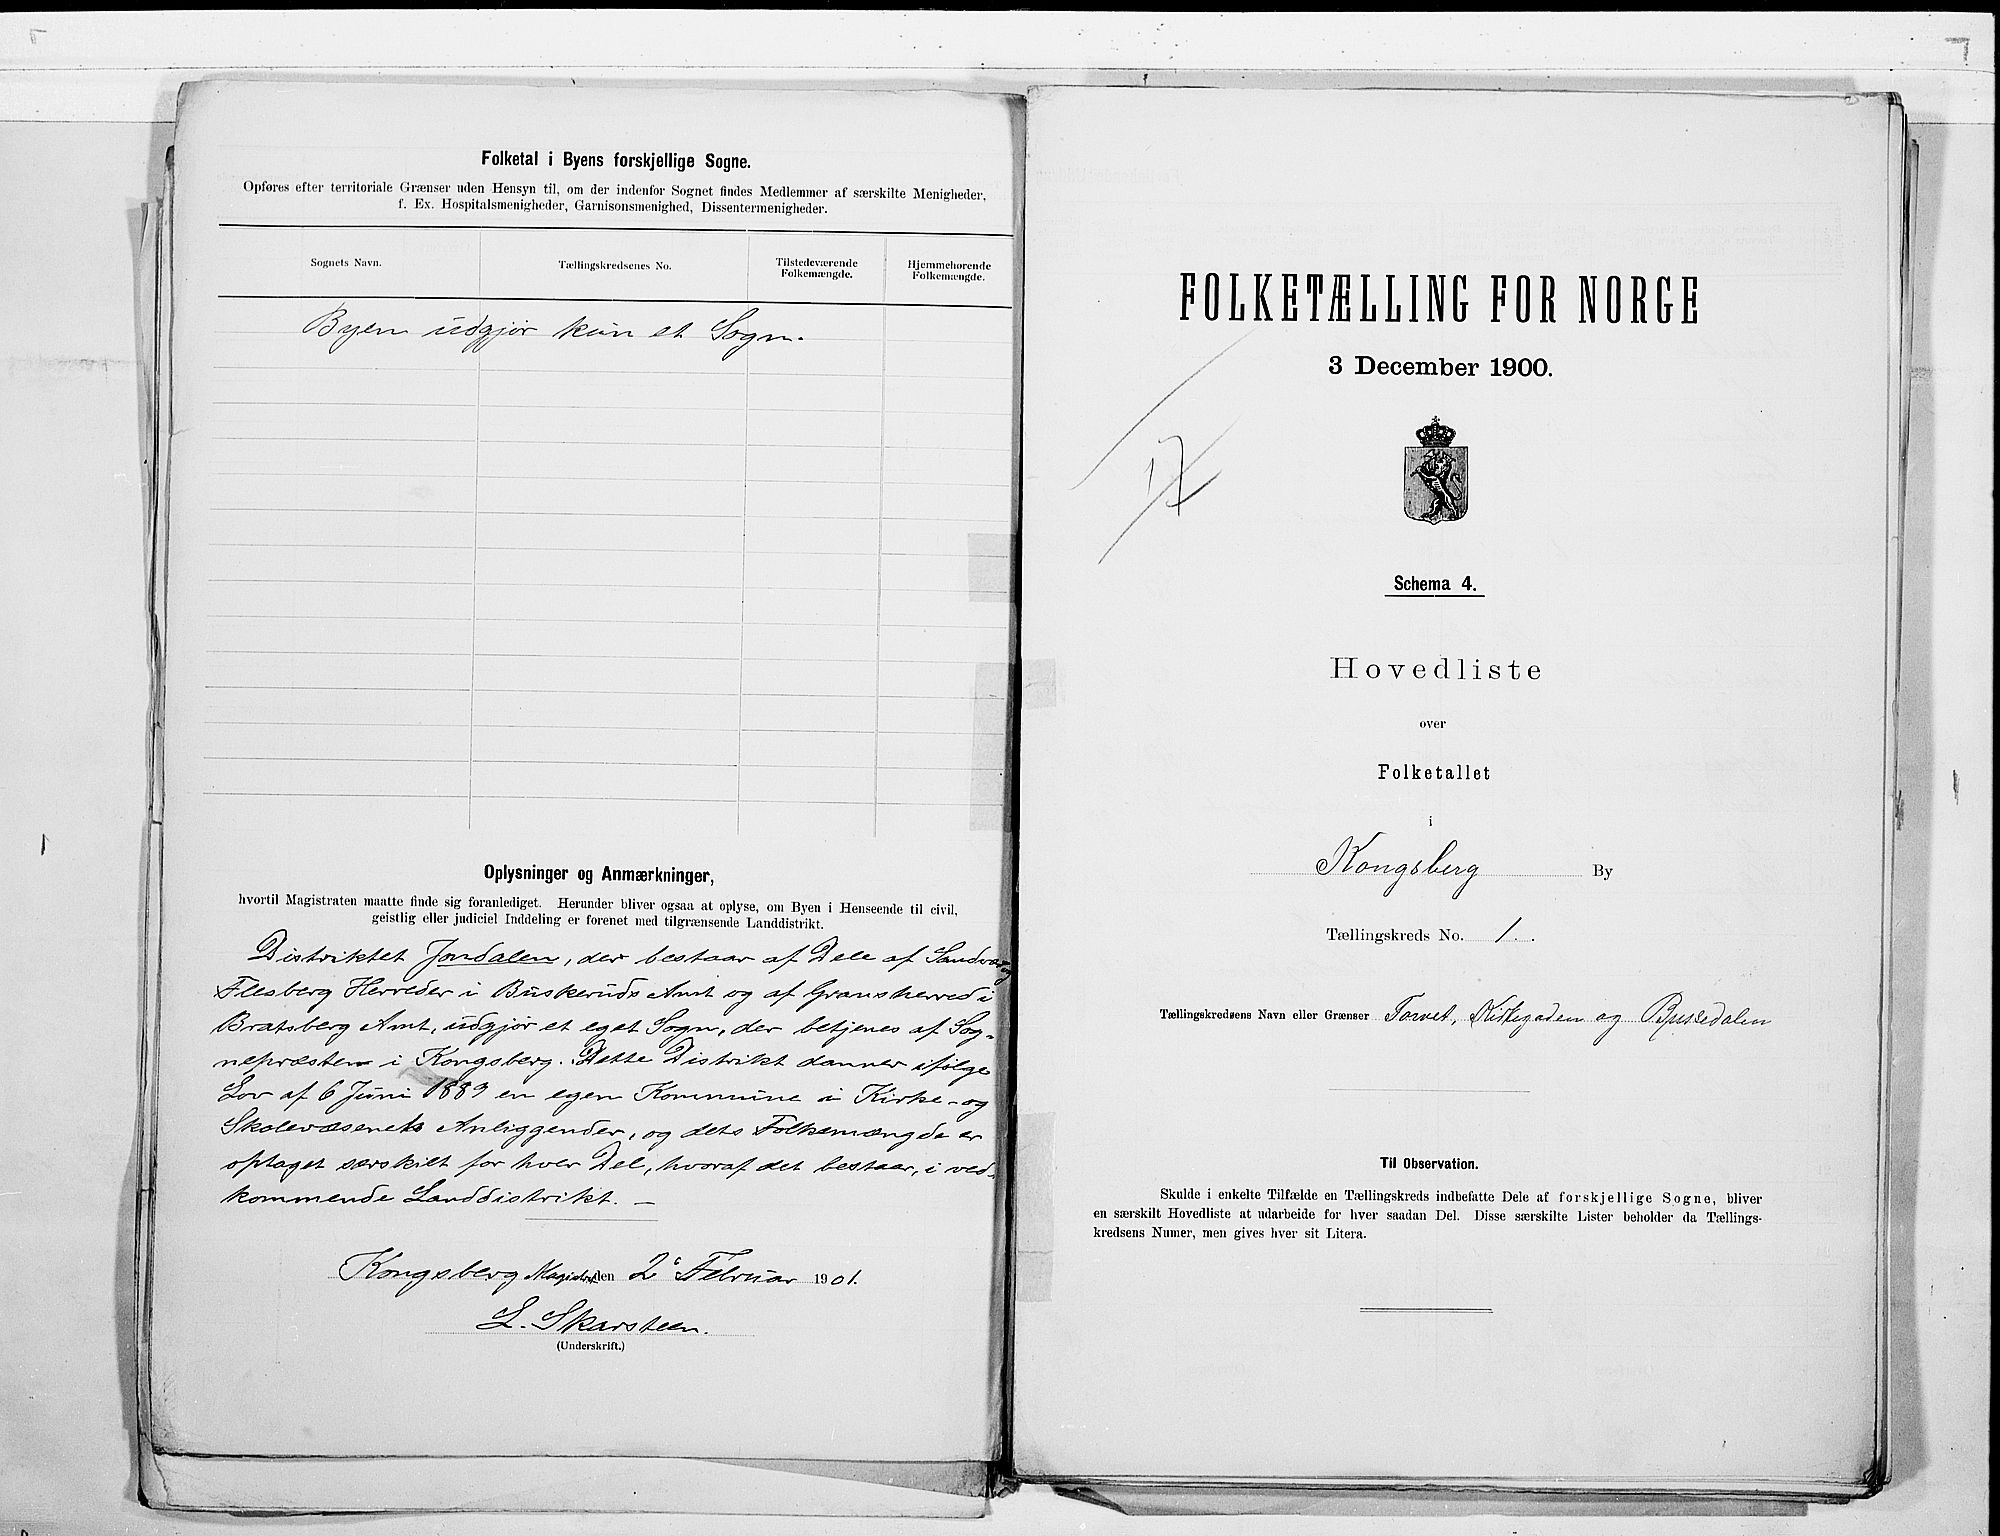 Folketal i Byens forskjellige Sogne.
Opføres efter territoriale Grænser uden Hensyn til, om der indenfor Sognet findes Medlemmer af særskilte Menigheder,
f. Ex. Hospitalsmenigheder, Garnisonsmenighed, Dissentermenigheder.
Sognets Navn. Tællingskredsenes No. Tilstedeværende Folkemængde. Hjemmehørende Folkemængde.
Byen udgjør kun et Sogn.
Oplysninger og Anmærkninger,
hvortil Magistraten maatte finde sig foranlediget. Herunder bliver ogsaa at oplyse, om Byen i Henseende til civil,
geistlig eller judiciel Inddeling er forenet med tilgrænsende Landdistrikt.
Distriktet Jondalen, der bestaar af Dele af Sandsvær og
Flesberg Herreder i Buskeruds Amt og af Gransherred i
Bratsberg Amt, udgjør et eget Sogn, der betjenes af Sog-
nepræsten i Kongsberg. Dette Distrikt danner ifølge
Lov af 6 Juni 1889 en egen Kommune i Kirke- og
Skolevæsenets Anliggender, og dets Folkemængde er
optaget særskilt for hver Del, hvoraf det bestaar, i ved-
kommende Landdistrikt. —
Kongsberg Magistrat den 2 Februar 1901.
L. Skarsteen.
(Underskrift.)
FOLKETÆLLING FOR NORGE
3 December 1900.
17
Schema 4.
Hovedliste
over
Folketallet
i
Kongsberg By
Tællingskreds No. 1.
Tællingskredsens Navn eller Grænser Torvet, Kirkegaden og Bussedalen
Til Observation.
Skulde i enkelte Tilfælde en Tællingskreds indbefatte Dele af forskjellige Sogne, bliver
en særskilt Hovedliste at udarbeide for hver saadan Del. Disse særskilte Lister beholder da Tællings-
kredsens Numer, men gives hver sit Litera.